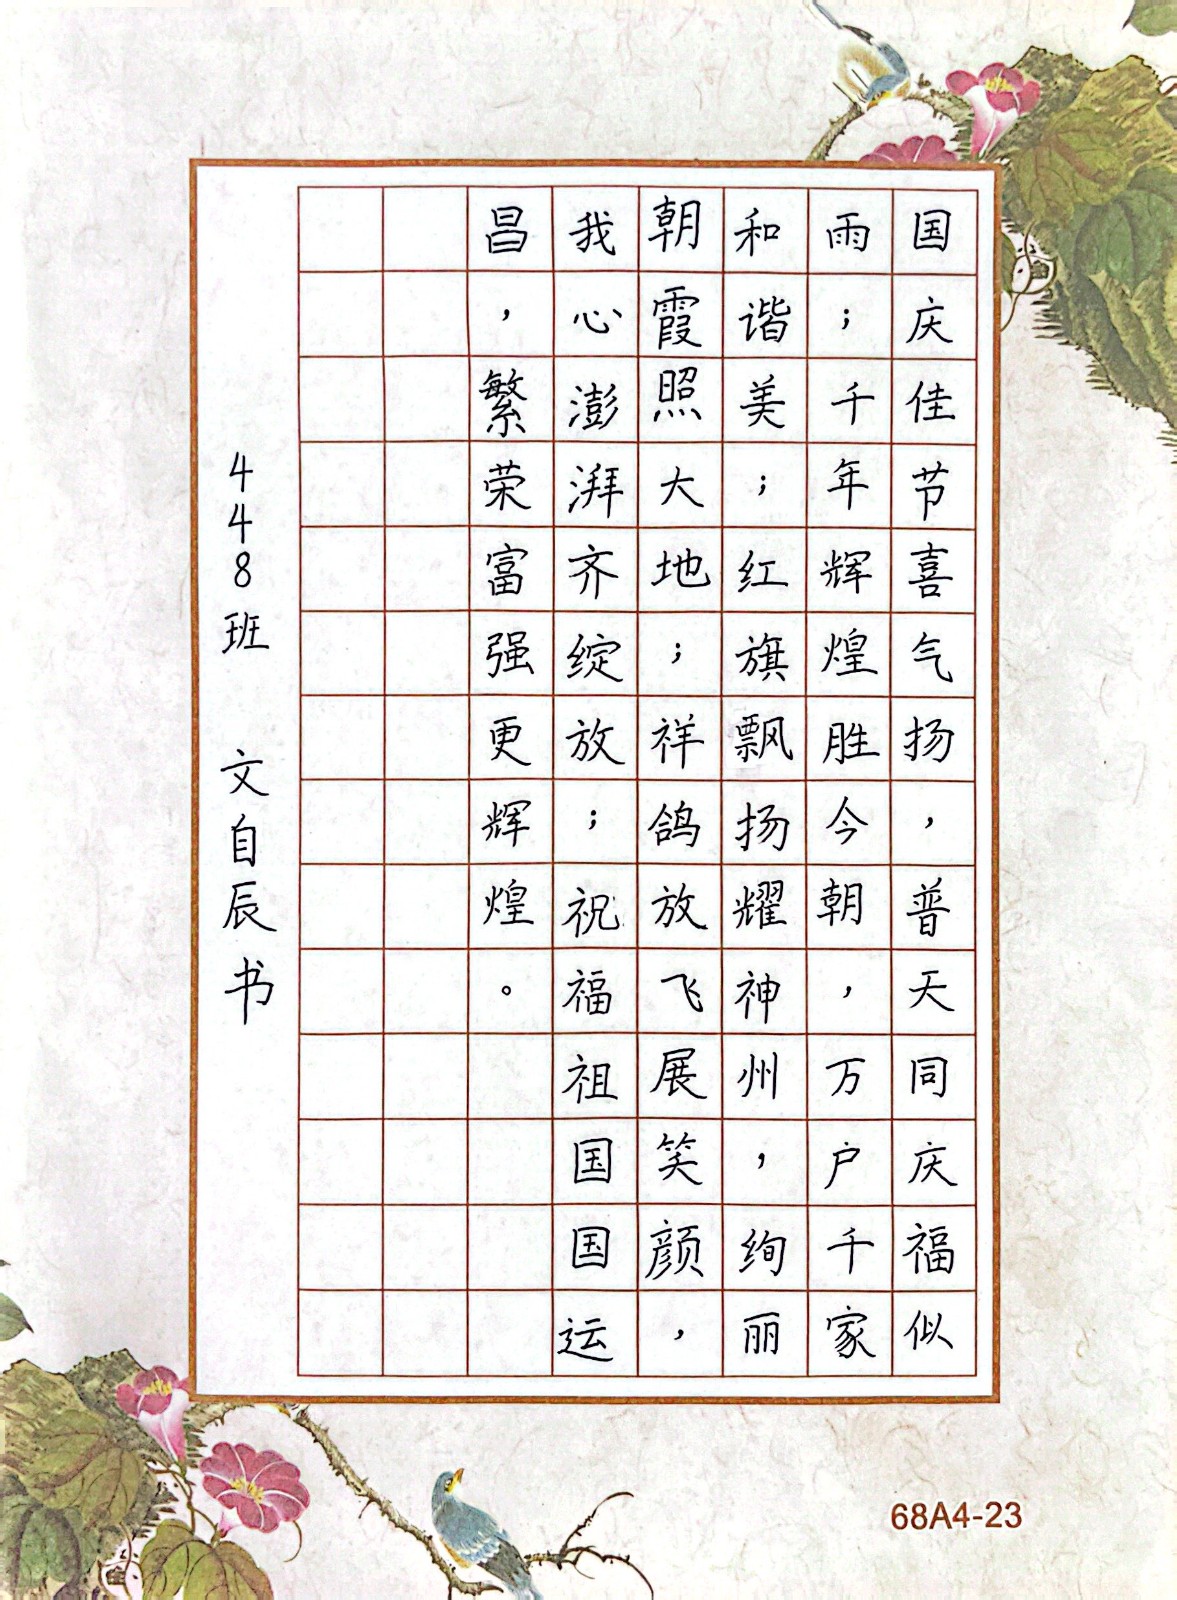 国庆佳节喜气扬，普天同庆福似
雨；千年辉煌胜今朝，万户千家
和谐美；红旗飘扬耀神州，绚丽
朝霞照大地；祥鸽放飞展笑颜，
我心澎湃齐绽放；祝福祖国国运
昌，繁荣富强更辉煌。
448班 文自辰书
68A4-23